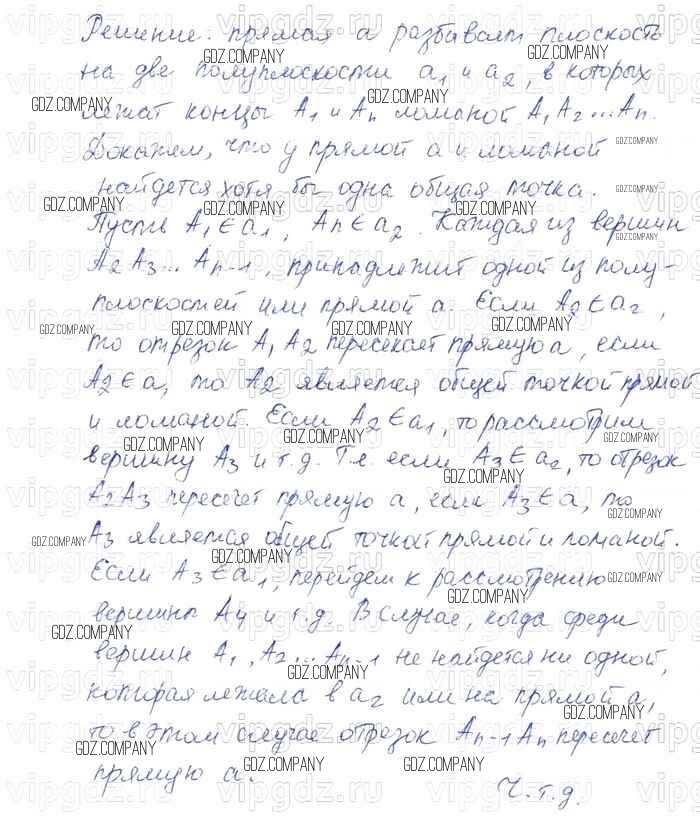 Решение: прямая a разбивает плоскость
на две полуплоскости a₁ и a₂, в которых
лежат концы A₁ и Aₙ ломаной A₁A₂...Aₙ.
Докажем, что у прямой a и ломаной
найдется хотя бы одна общая точка.
Пусть A₁ ∈ a₁, Aₙ ∈ a₂. Каждая из вершин
A₂A₃...Aₙ₋₁, принадлежит одной из полу-
плоскостей или прямой a. Если A₂ ∈ a₂,
то отрезок A₁A₂ пересекает прямую a, если
A₂ ∈ a, то A₂ является общей точкой прямой
и ломаной. Если A₂ ∈ a₁, то рассмотрим
вершину A₃ и т.д. Т.е. если A₃ ∈ a₂, то отрезок
A₂A₃ пересечет прямую a, если A₃ ∈ a, то
A₃ является общей точкой прямой и ломаной.
Если A₃ ∈ a₁, перейдем к рассмотрению
вершины A₄ и т.д. В случае, когда среди
вершин A₁, A₂...Aₙ₋₁ не найдется ни одной,
которая лежала в a₂ или на прямой a,
то в этом случае отрезок Aₙ₋₁Aₙ пересечет
прямую a.
Ч.т.д.
GDZ.COMPANY
vipgdz.ru